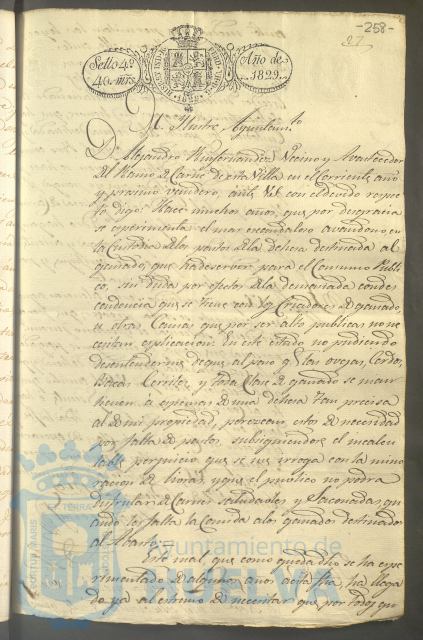 -258-
27
Sello 4º
40 mrs.
Año de
1829.
M. Ilustre Ayuntam.to
D.n Alejandro Ruifernandez Vecino y Abastecedor
del Ramo de Carne de esta Villa en el Corriente año
y proximo venidero, ante V.S. con el devido respe
to digo: Hace muchos años, que por desgracia
se esperimenta el mas escandaloso avandono, en
la Custodia de los pastos de la dehesa destinada al
ganado, que ha de servir para el Consumo Publi
co, sin duda por efecto de la demasiada condes
cendencia que se tiene con los Criadores de ganado
u otras Causas que por ser alto publicas no ne
cesitan esplicacion. En este estado no pudiendo
desentenderme de que al paso q.e las ovejas, Cerdos,
Bacas Cerriles, y toda Clase de ganado se man
tienen a espensas de una dehesa tan precisa
al de mi propiedad, perezcan estos de necesidad
por falta de pastos, subsiguiendose el incalcu
lable perjuicio que se nos irroga con la mino
racion de libras, y que el publico no podra
disfrutar de Carnes saludables y Sazonadas, qu
ando les falta la Comida a los ganados destinados
al Abasto.
Este mal, que como queda dho se ha espe
rimentado de algunos años a esta fha, ha llega
do ya al estremo de necesitar que por todos qu
Ayuntamiento de
HUELVA
PORTUS MARIS
ET TERRAE
CUSTODIA